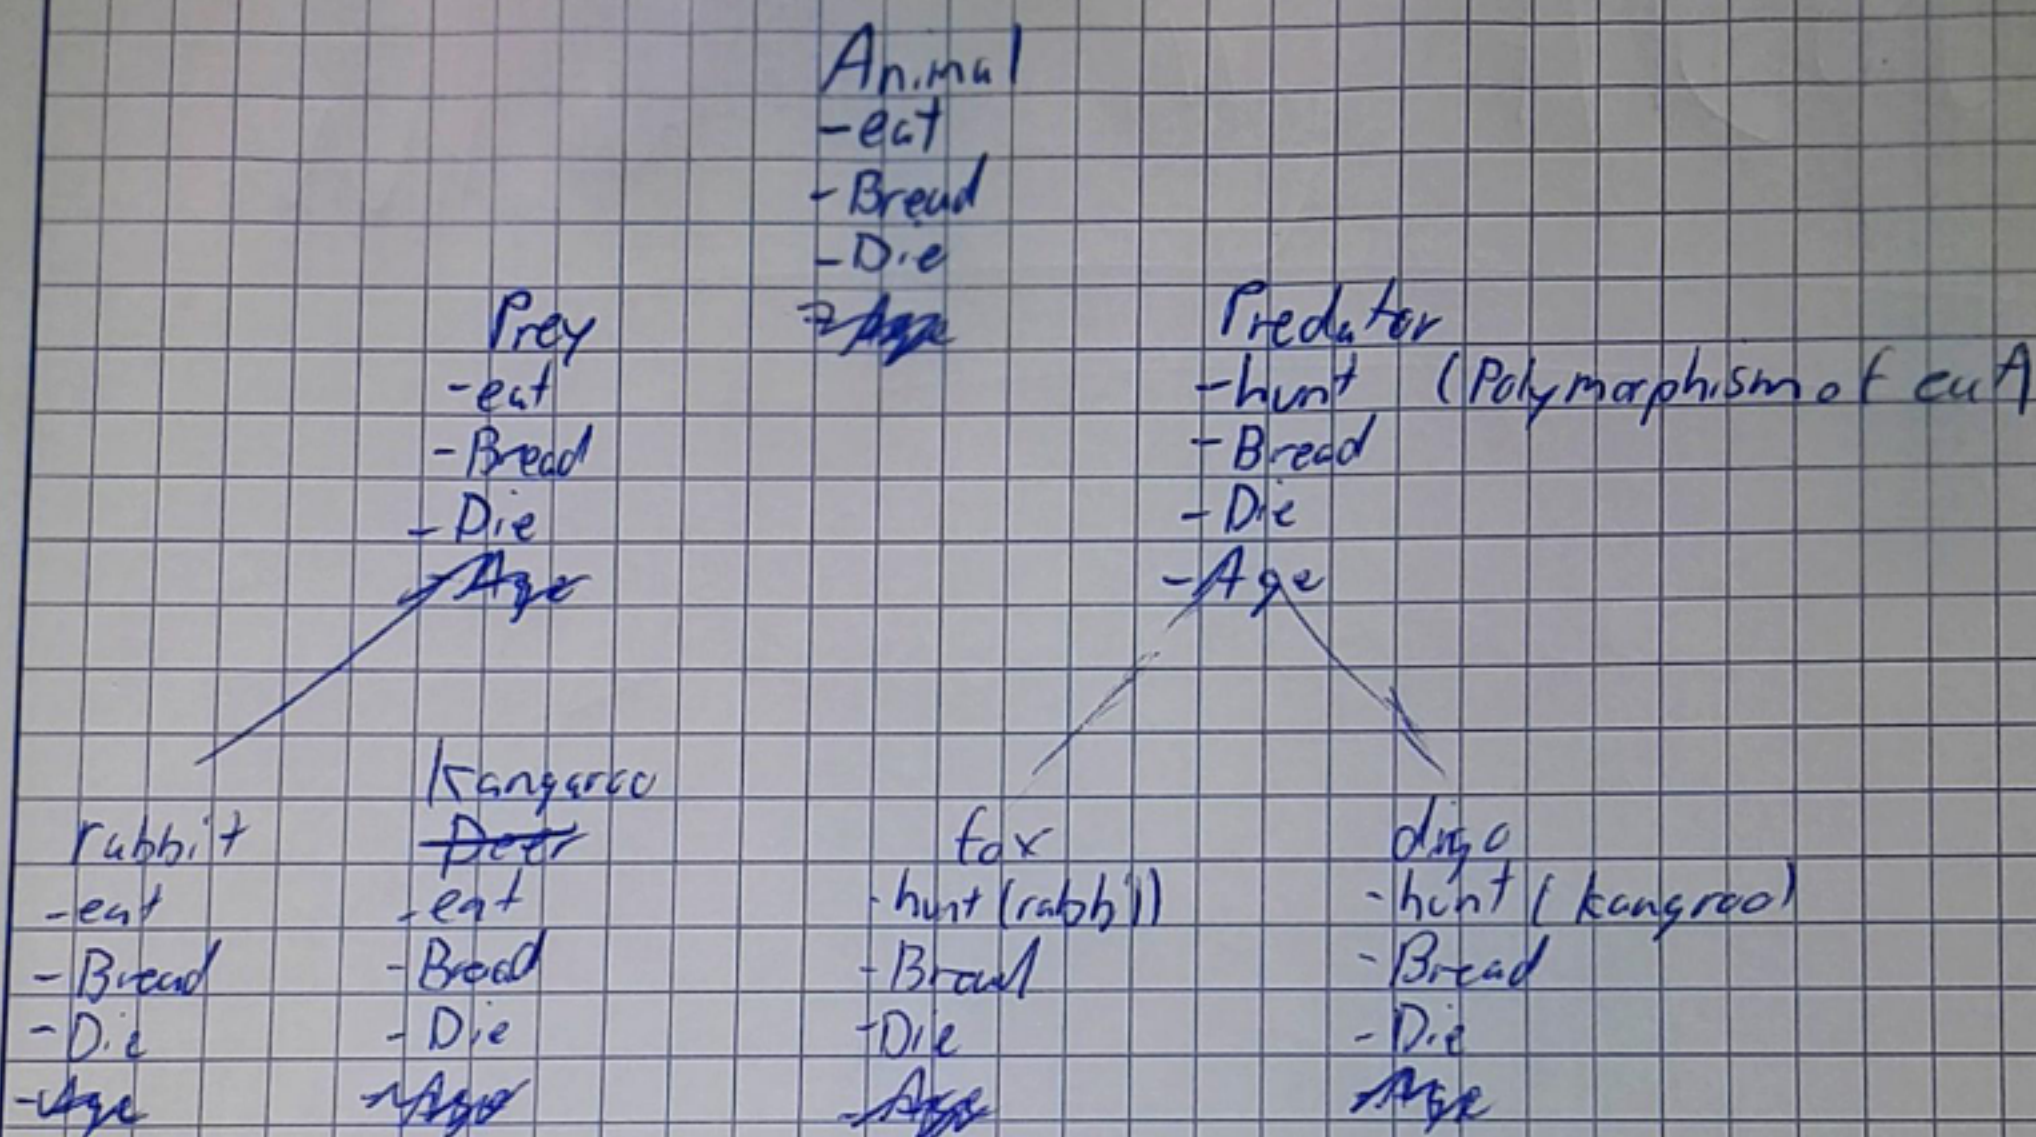 Animal
-eat
-Bread
-Die
-Age
Prey
-eat
-Bread
-Die
-Age
Predator
-hunt (Polymorphism of eat
-Bread
-Die
-Age
rabbit
-eat
-Bread
-Die
-Age
Kangaroo
Deer
-eat
-Bread
-Die
-Age
fox
-hunt (rabbit)
-Bread
-Die
-Age
digo
-hunt (kangroo)
-Bread
-Die
-Age